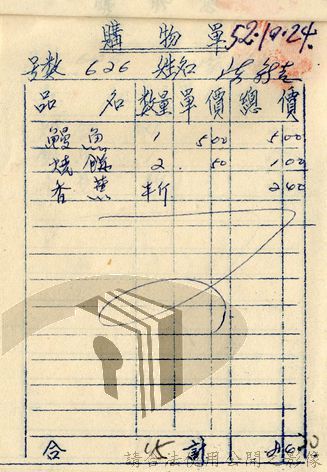 購物單 52.10.24.
号數 626 姓名
品名 數量 單價 總價
鰻魚 1 5.00 5.00
燒餅 2 .50 1.00
香蕉 半斤 2.40
合計
請合法使用公開之影像